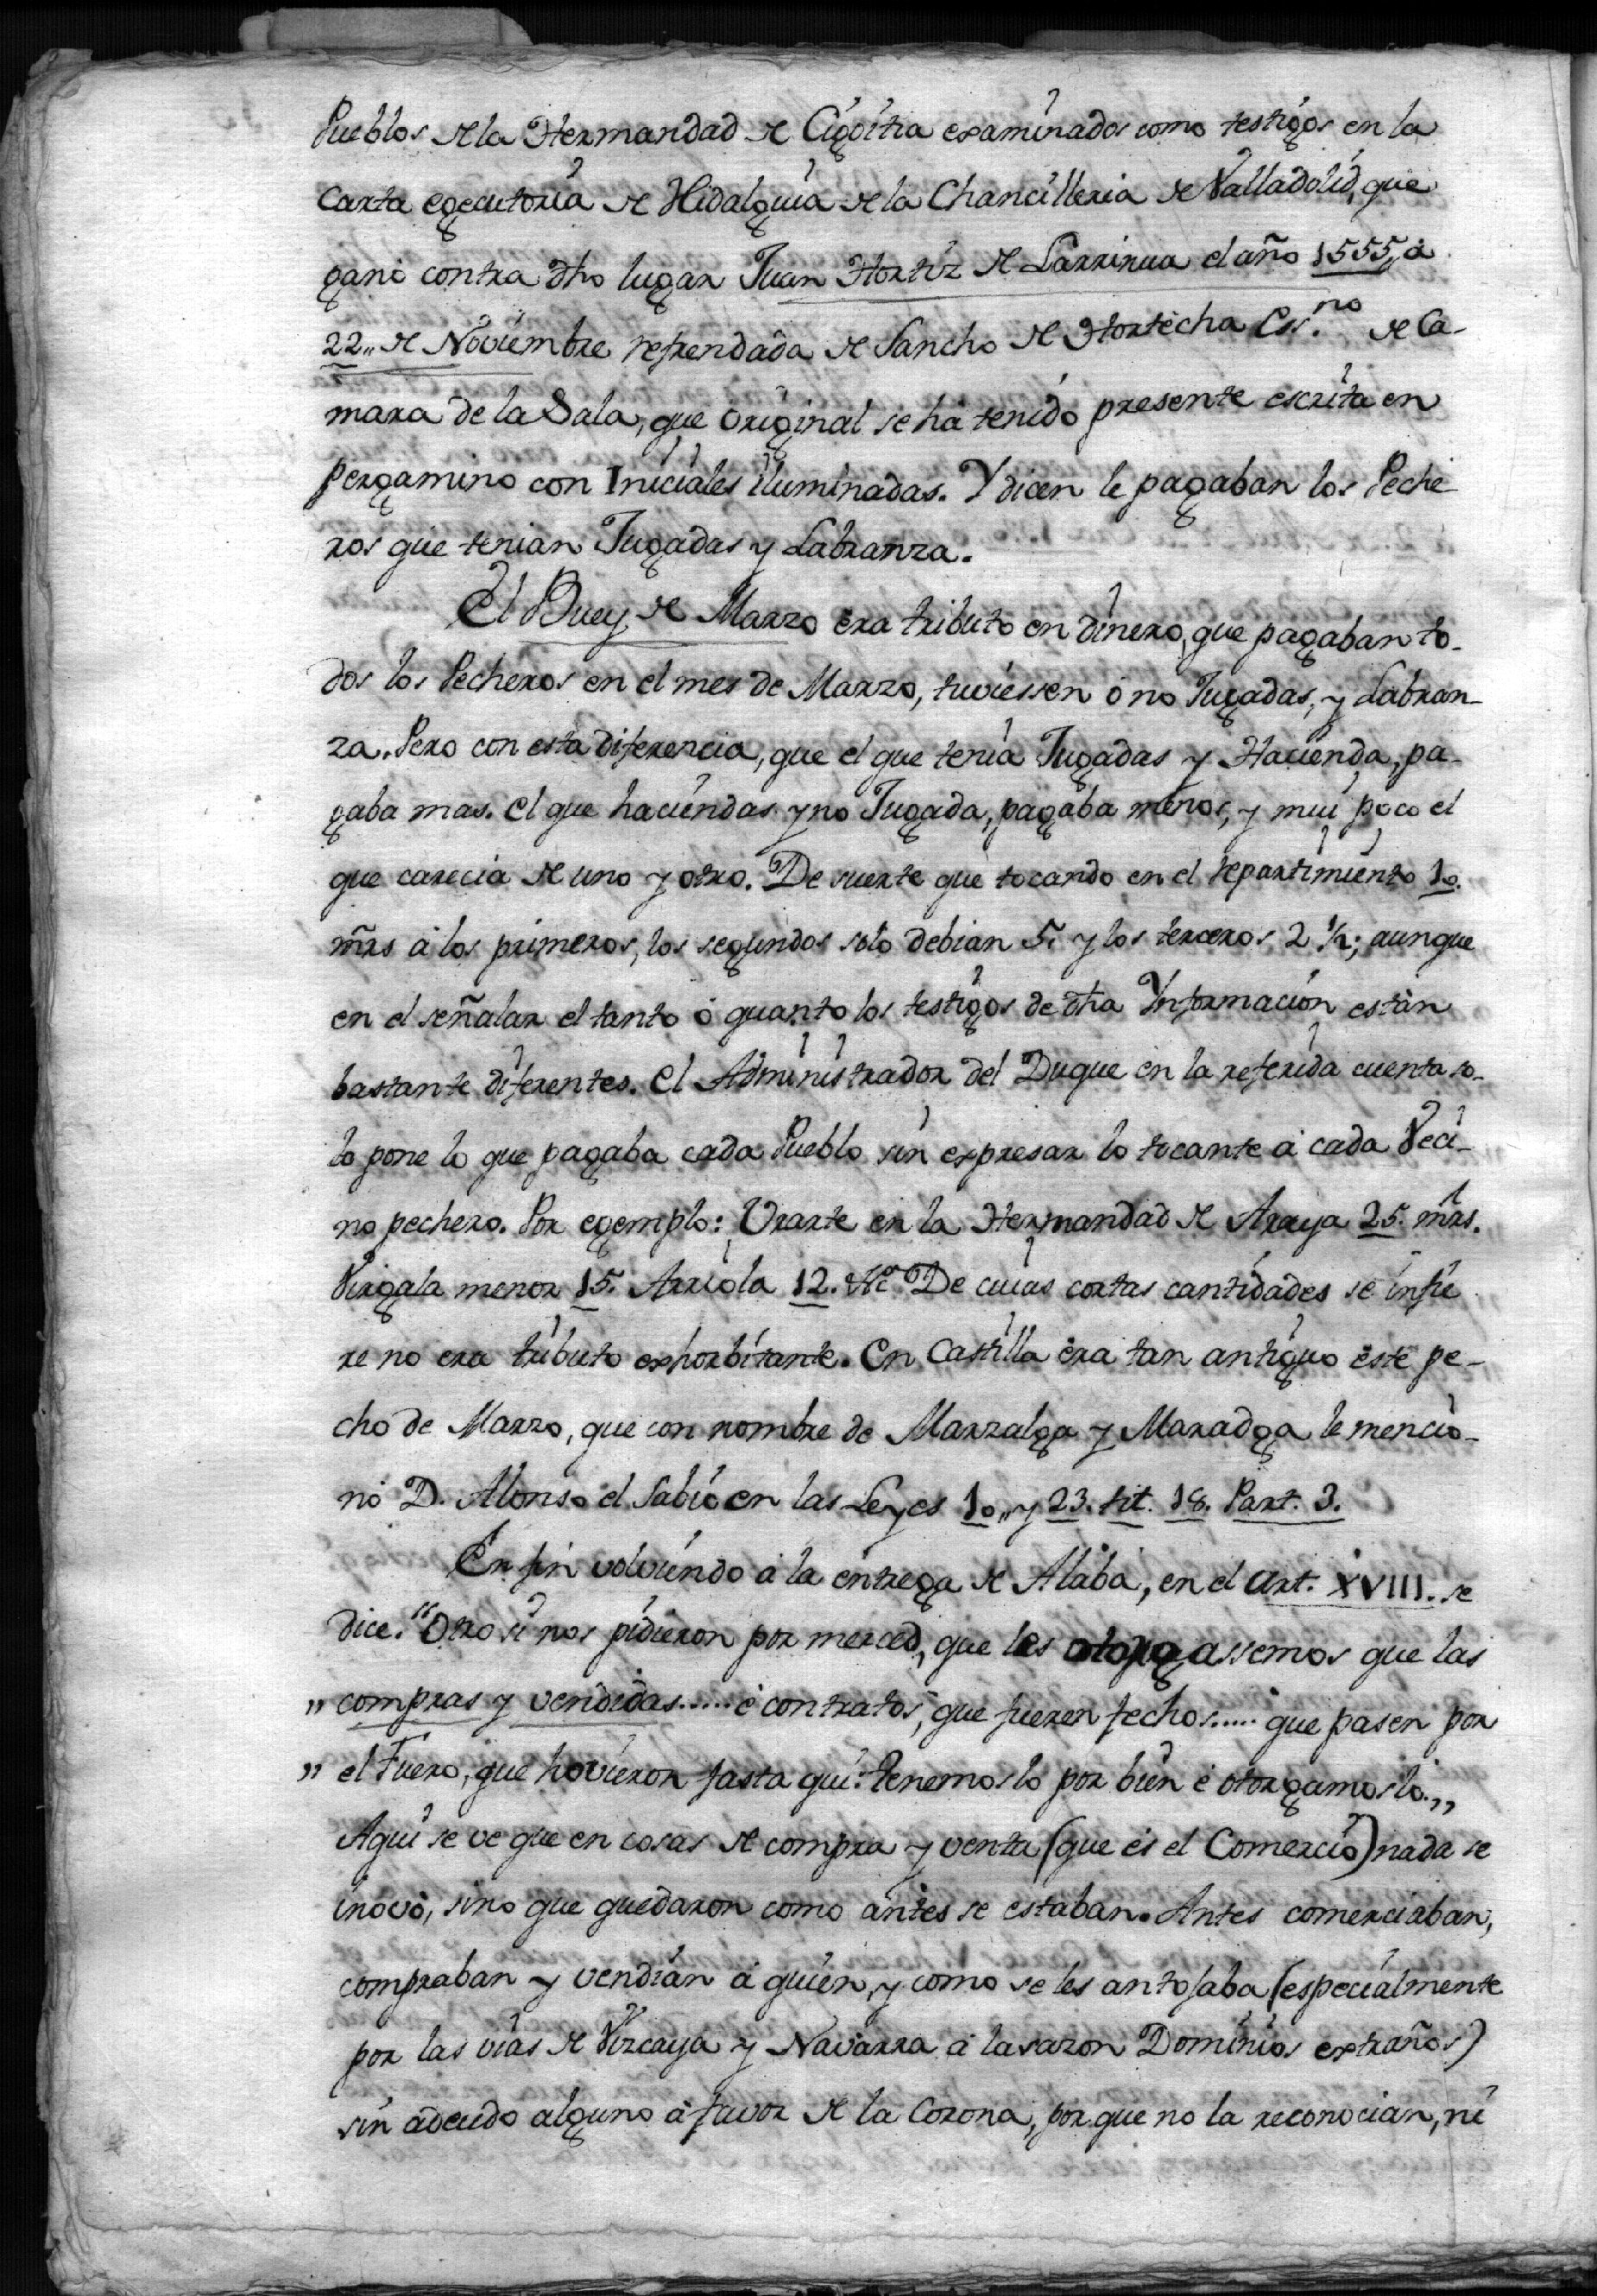 Pueblos de la Hermandad de Cigoitia examinados como testigos en la
Carta egecutoria de Hidalguia de la Chancilleria de Valladolid, que
ganó contra dho lugar Juan Hortiz de Larrinua el año 1555, á
22,, de Noviembre refrendada de Sancho de Hortecha Ess.no de Ca-
mara de la Sala, que original se há tenido presente escrita en
pergamino con Iniciales iluminadas. Y dicen le pagaban los Peche-
ros que tenian Jugadas y Labranza.
El Buey de Marzo era tributo en dinero, que pagaban to-
dos los Pecheros en el mes de Marzo, tuviessen ó no Jugadas, y Labran-
za. Pero con esta diferencia, que el que tenia Jugadas y Hacienda, pa-
gaba mas. el que haciendas y no Jugada, pagaba menos, y mui poco el
que carecia de uno y otro. De suerte que tocando en el repartimiento 10.
mr̃s á los primeros, los segundos solo debian 5. y los terceros 2 ½; aunque
en el señalar el tanto ó quanto los testigos de dha Informacion están
bastante diferentes. el Administrador del Duque en la referida cuenta so-
lo pone lo que pagaba cada Pueblo sin expresar lo tocante á cada Veci-
no pechero. Por egemplo: Urarte en la Hermandad de Araya 25. mrs.
Virgala menor 15. Arriola 12. &c.a De cuias cortas cantidades se infie
re no era tributo exhorbitante. en Castilla era tan antiguo este pe-
cho de Marzo, que con nombre de Marzalga y Maradga le mencio-
nó D. Alonso el Sabio en las Leyes 10,, y 23. tit. 18. Part. 3.
En fin volviendo á la entrega de Alaba, en el Art. XVIII. se
dice. "Otro si nos pidieron por merced, que les otorgassemos que las
,, compras y vendidas..... é contratos, que fueren fechos..... que pasen por
,, el Fuero, que hovieron fasta qui: tenemoslo por bien é otorgamoslo.,,
Aqui se ve que en cosas de compra y venta (que es el Comercio) nada se
inovó, sino que quedaron como antes se estaban. Antes comerciaban,
compraban y vendian á quien, y como se les antojaba (especialmente
por las vias de Vizcaya y Navarra á la sazon Dominios extraños)
sin adeudo alguno á favor de la Corona, porque no la reconocian, ni